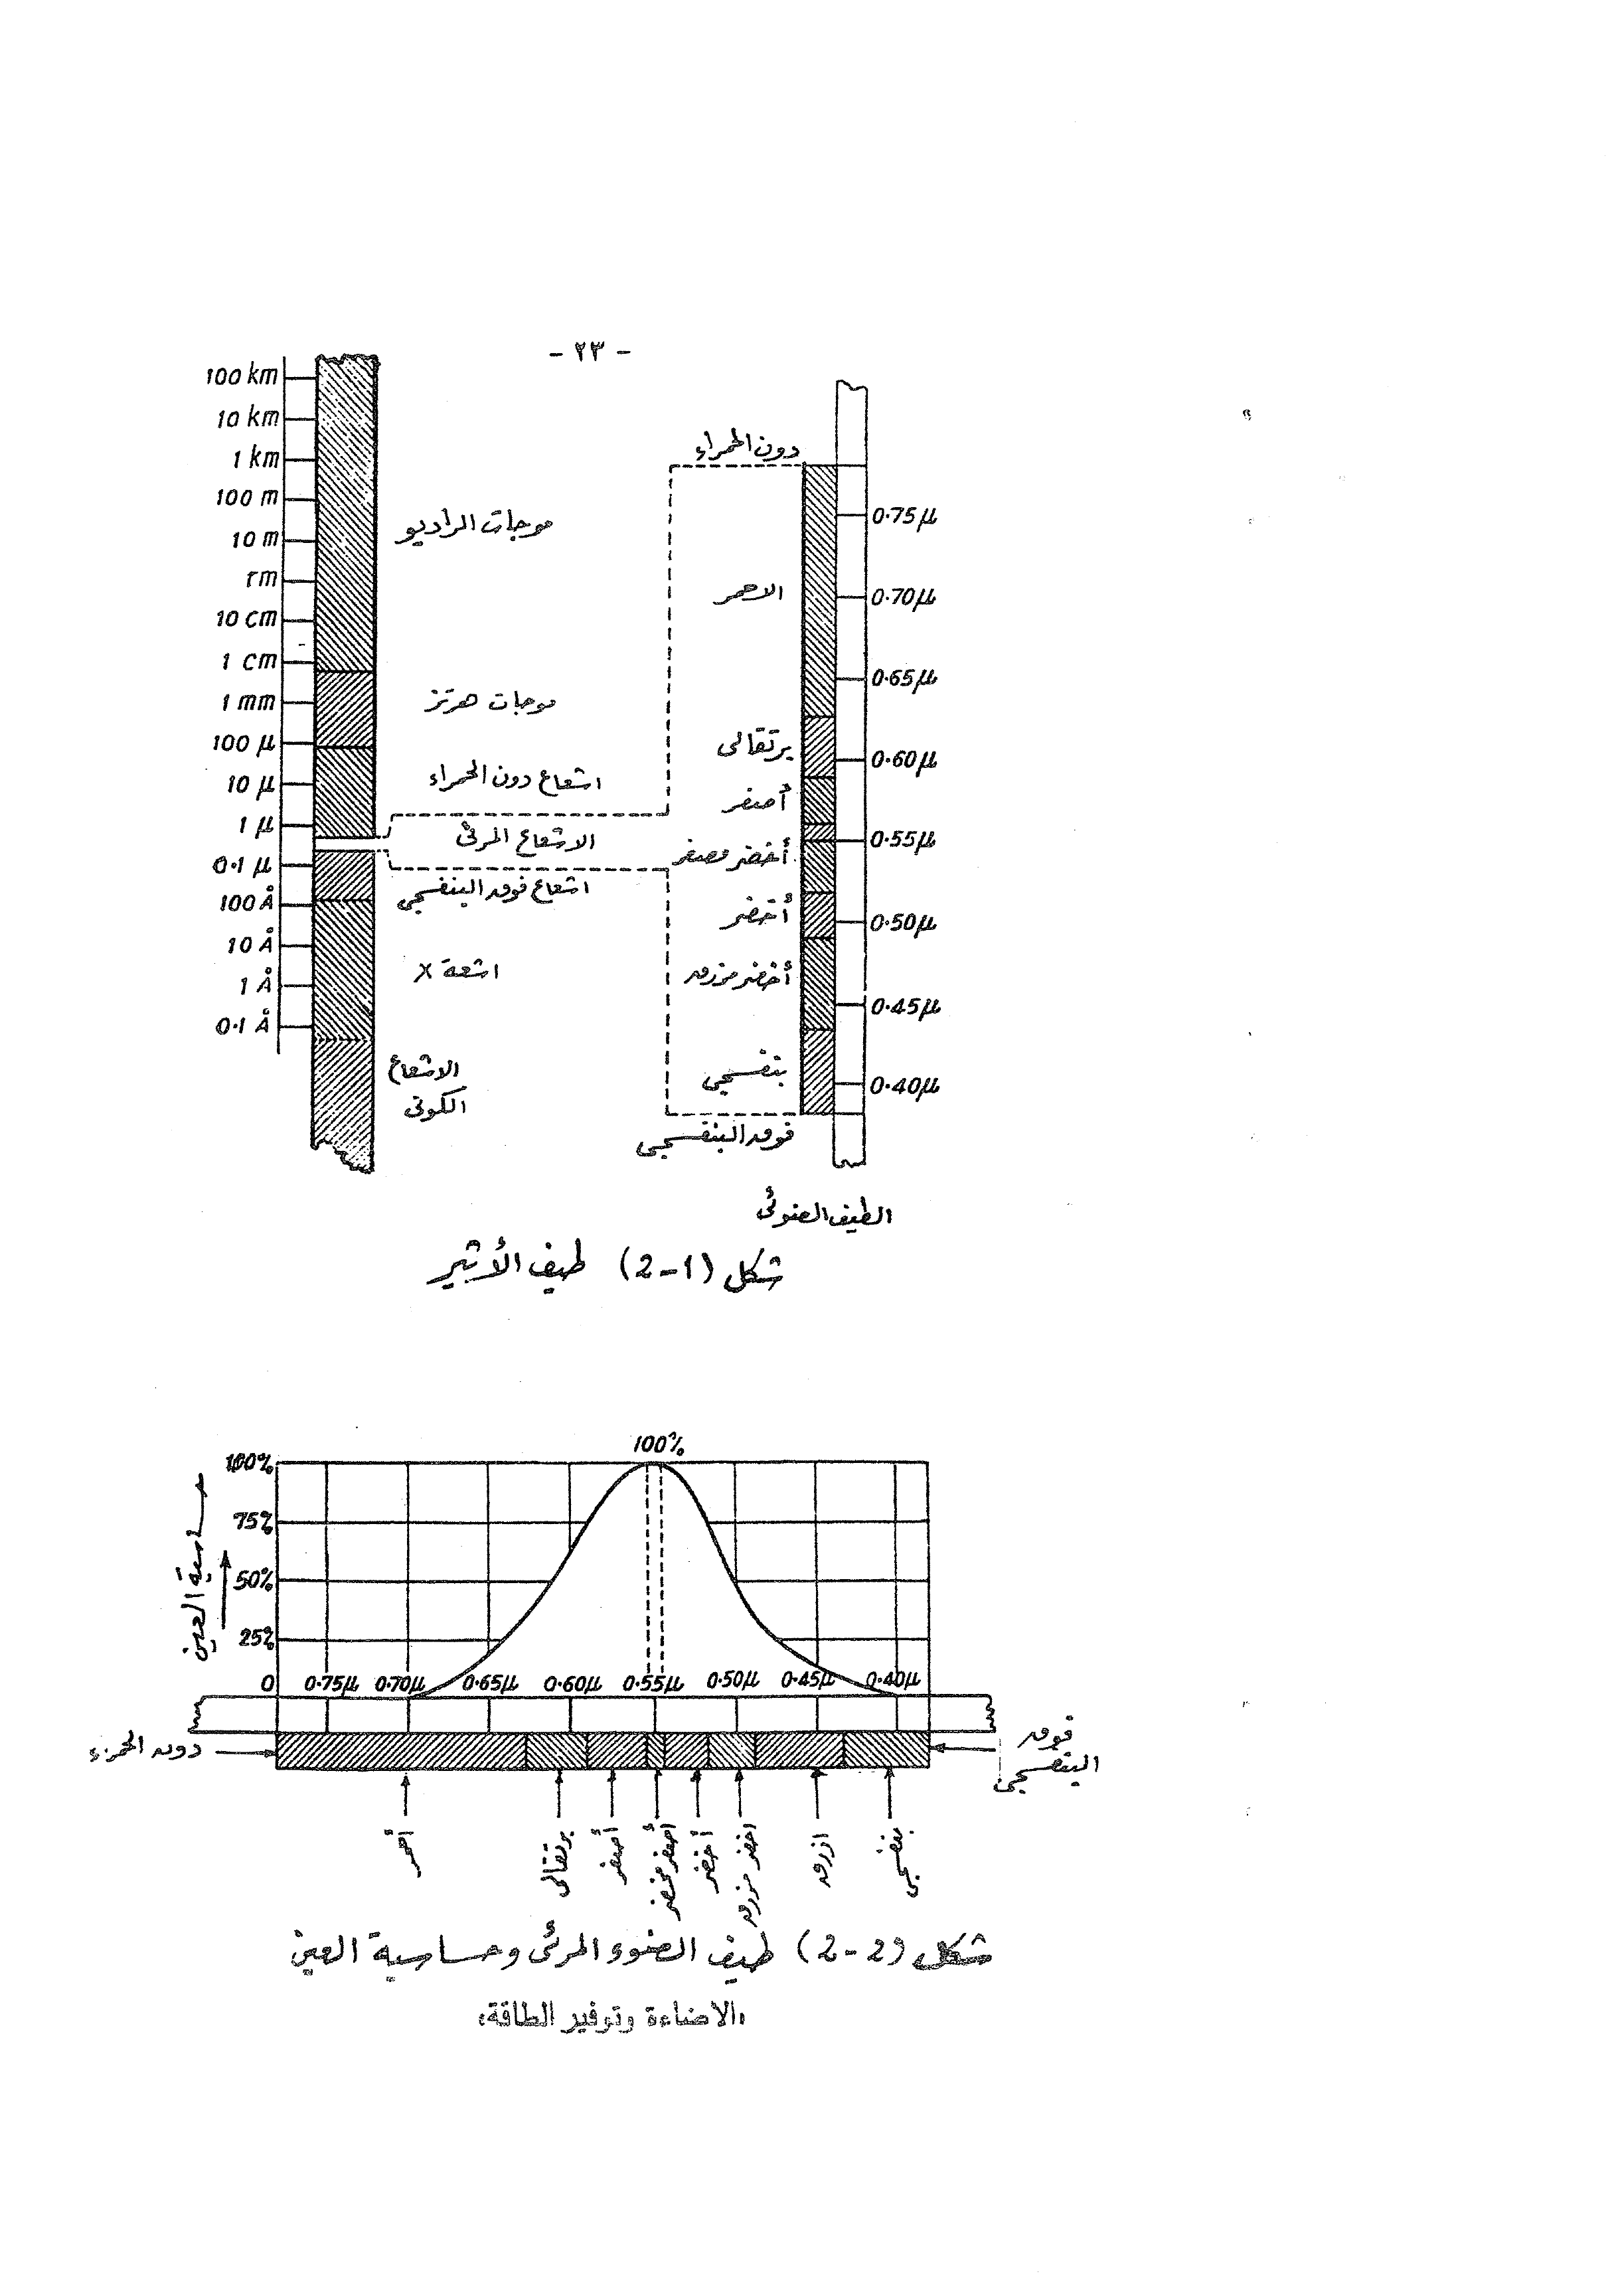 - ٢٣ -
100 km
10 km
1 km
100 m
10 m
1m
10 cm
1 cm
1 mm
100 μ
10 μ
1 μ
0.1 μ
100 Å
10 Å
1 Å
0.1 Å
موجات الراديو
موجات هرتز
اشعاع دون الحمراء
الاشعاع المرئى
اشعاع فوق البنفسجى
اشعة X
الاشعاع
الكونى
دون الحمراء
الاحمر
برتقالى
أصفر
أخضر مصفر
أخضر
أخضر مزرق
بنفسجى
فوق البنفسجى
0.75μ
0.70μ
0.65μ
0.60μ
0.55μ
0.50μ
0.45μ
0.40μ
الطيف الضوئى
شكل (2-1) طيف الأثير
100%
100%
75%
50%
25%
0
حساسية العين
0.75μ 0.70μ 0.65μ 0.60μ 0.55μ 0.50μ 0.45μ 0.40μ
دون الحمراء
فوق
البنفسجى
أحمر
برتقالى
أصفر
أصفر مخضر
أخضر
اخضر مزرق
ازرق
بنفسجى
شكل (2-2) طيف الضوء المرئى وحساسية العين
«الاضاءة وتوفير الطاقة»